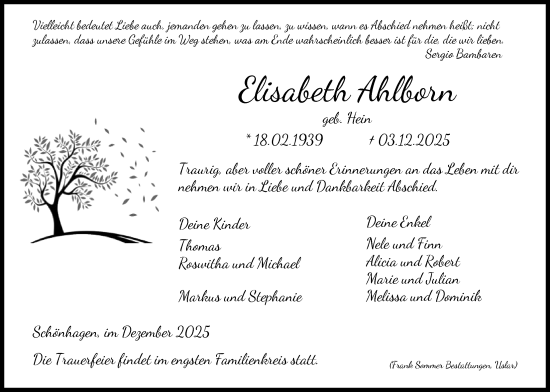 Vielleicht bedeutet Liebe auch, jemanden gehen zu lassen, zu wissen, wann es Abschied nehmen heißt; nicht
zulassen, dass unsere Gefühle im Weg stehen, was am Ende wahrscheinlich besser ist für die, die wir lieben.
Sergio Bambaren
Elisabeth Ahlborn
geb. Hein
* 18.02.1939 † 03.12.2025
Traurig, aber voller schöner Erinnerungen an das Leben mit dir
nehmen wir in Liebe und Dankbarkeit Abschied.
Deine Kinder
Thomas
Roswitha und Michael
Markus und Stephanie
Deine Enkel
Nele und Finn
Alicia und Robert
Marie und Julian
Melissa und Dominik
Schönhagen, im Dezember 2025
Die Trauerfeier findet im engsten Familienkreis statt.
(Frank Sommer Bestattungen, Uslar)